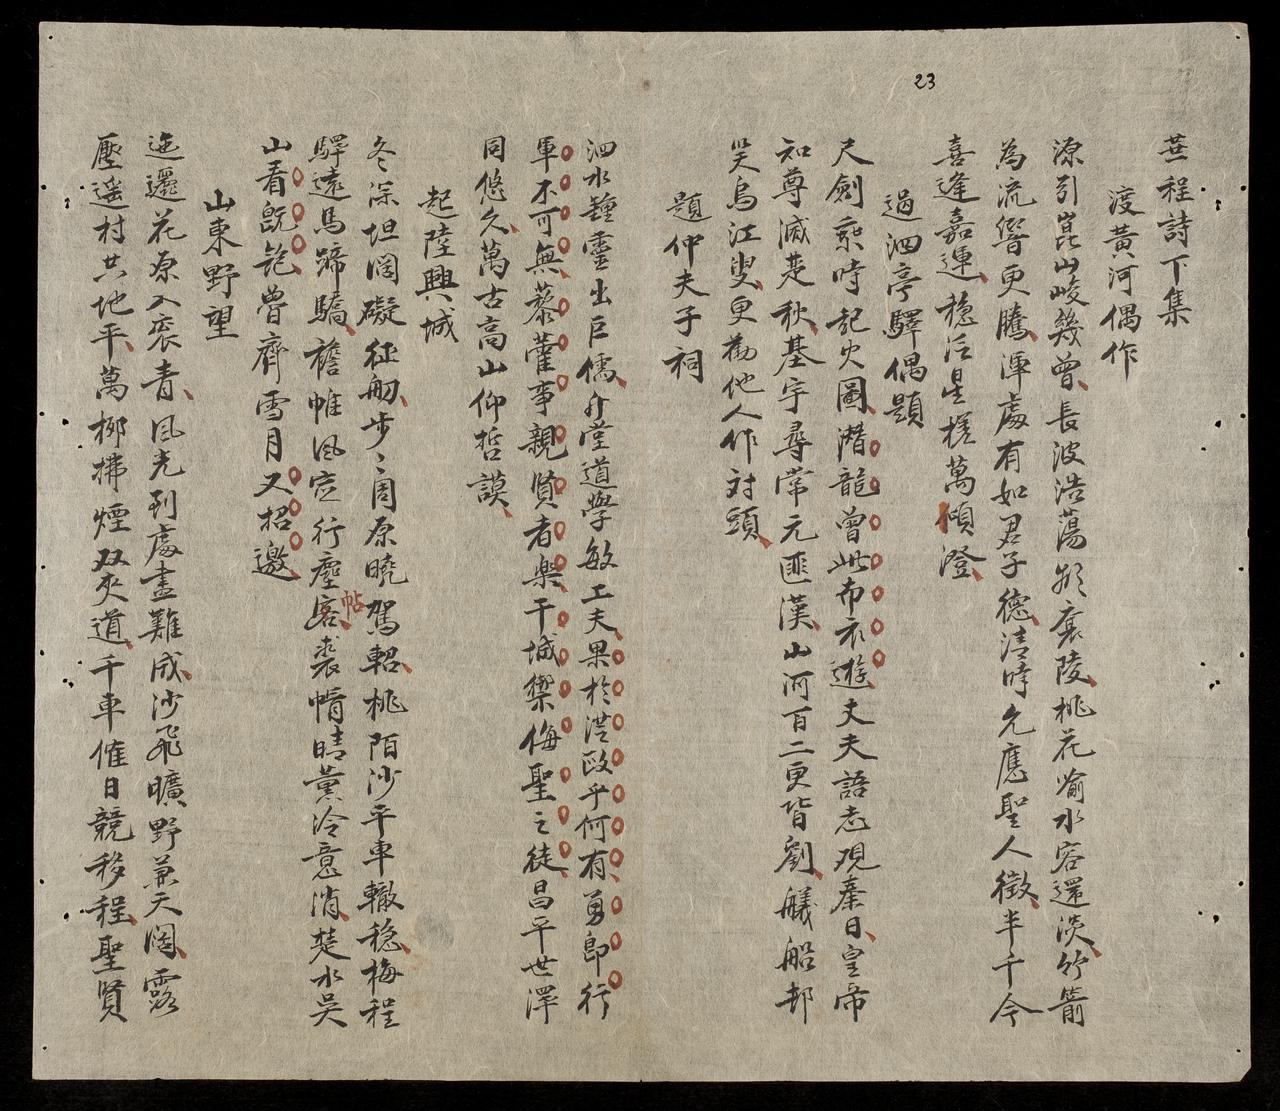 23
燕程詩下集
渡黃河偶作
源引崑山峻幾曾長波浩蕩欲襄陵桃花渝水容還淡竹箭
為流響更騰渾處有如君子德清時允應聖人徵半千今
喜逢嘉運穩泛星槎萬傾澄
過泗亭驛偶題
尺劍乘時起火圖潛龍曾此布衣遊丈夫語志觀秦日皇帝
知尊滅楚秋基宇尋常元匪漢山河百二更皆劉艤船却
笑烏江叟更勸他人作對頭
題仲夫子祠
泗水鍾靈出巨儒升堂道學敏工夫果於從政乎何有勇即行
軍不可無藜藿事親賢者樂干城禦侮聖之徒昌平世澤
同悠久萬古高山仰哲謨
起陸興城
冬深坦闊礙征舠步々周原曉駕軺桃陌沙平車轍穩梅程
驛遠馬蹄驕襜帷風定行塵帖客裘惰晴薰冷意消楚水吳
山看既飽曾齊雪月又招邀
山東野望
迤邐花原入袞青風光到處盡難成沙飛曠野兼天闊露
壓遥村共地平萬柳拂煙双夾道千車催日競移程聖賢